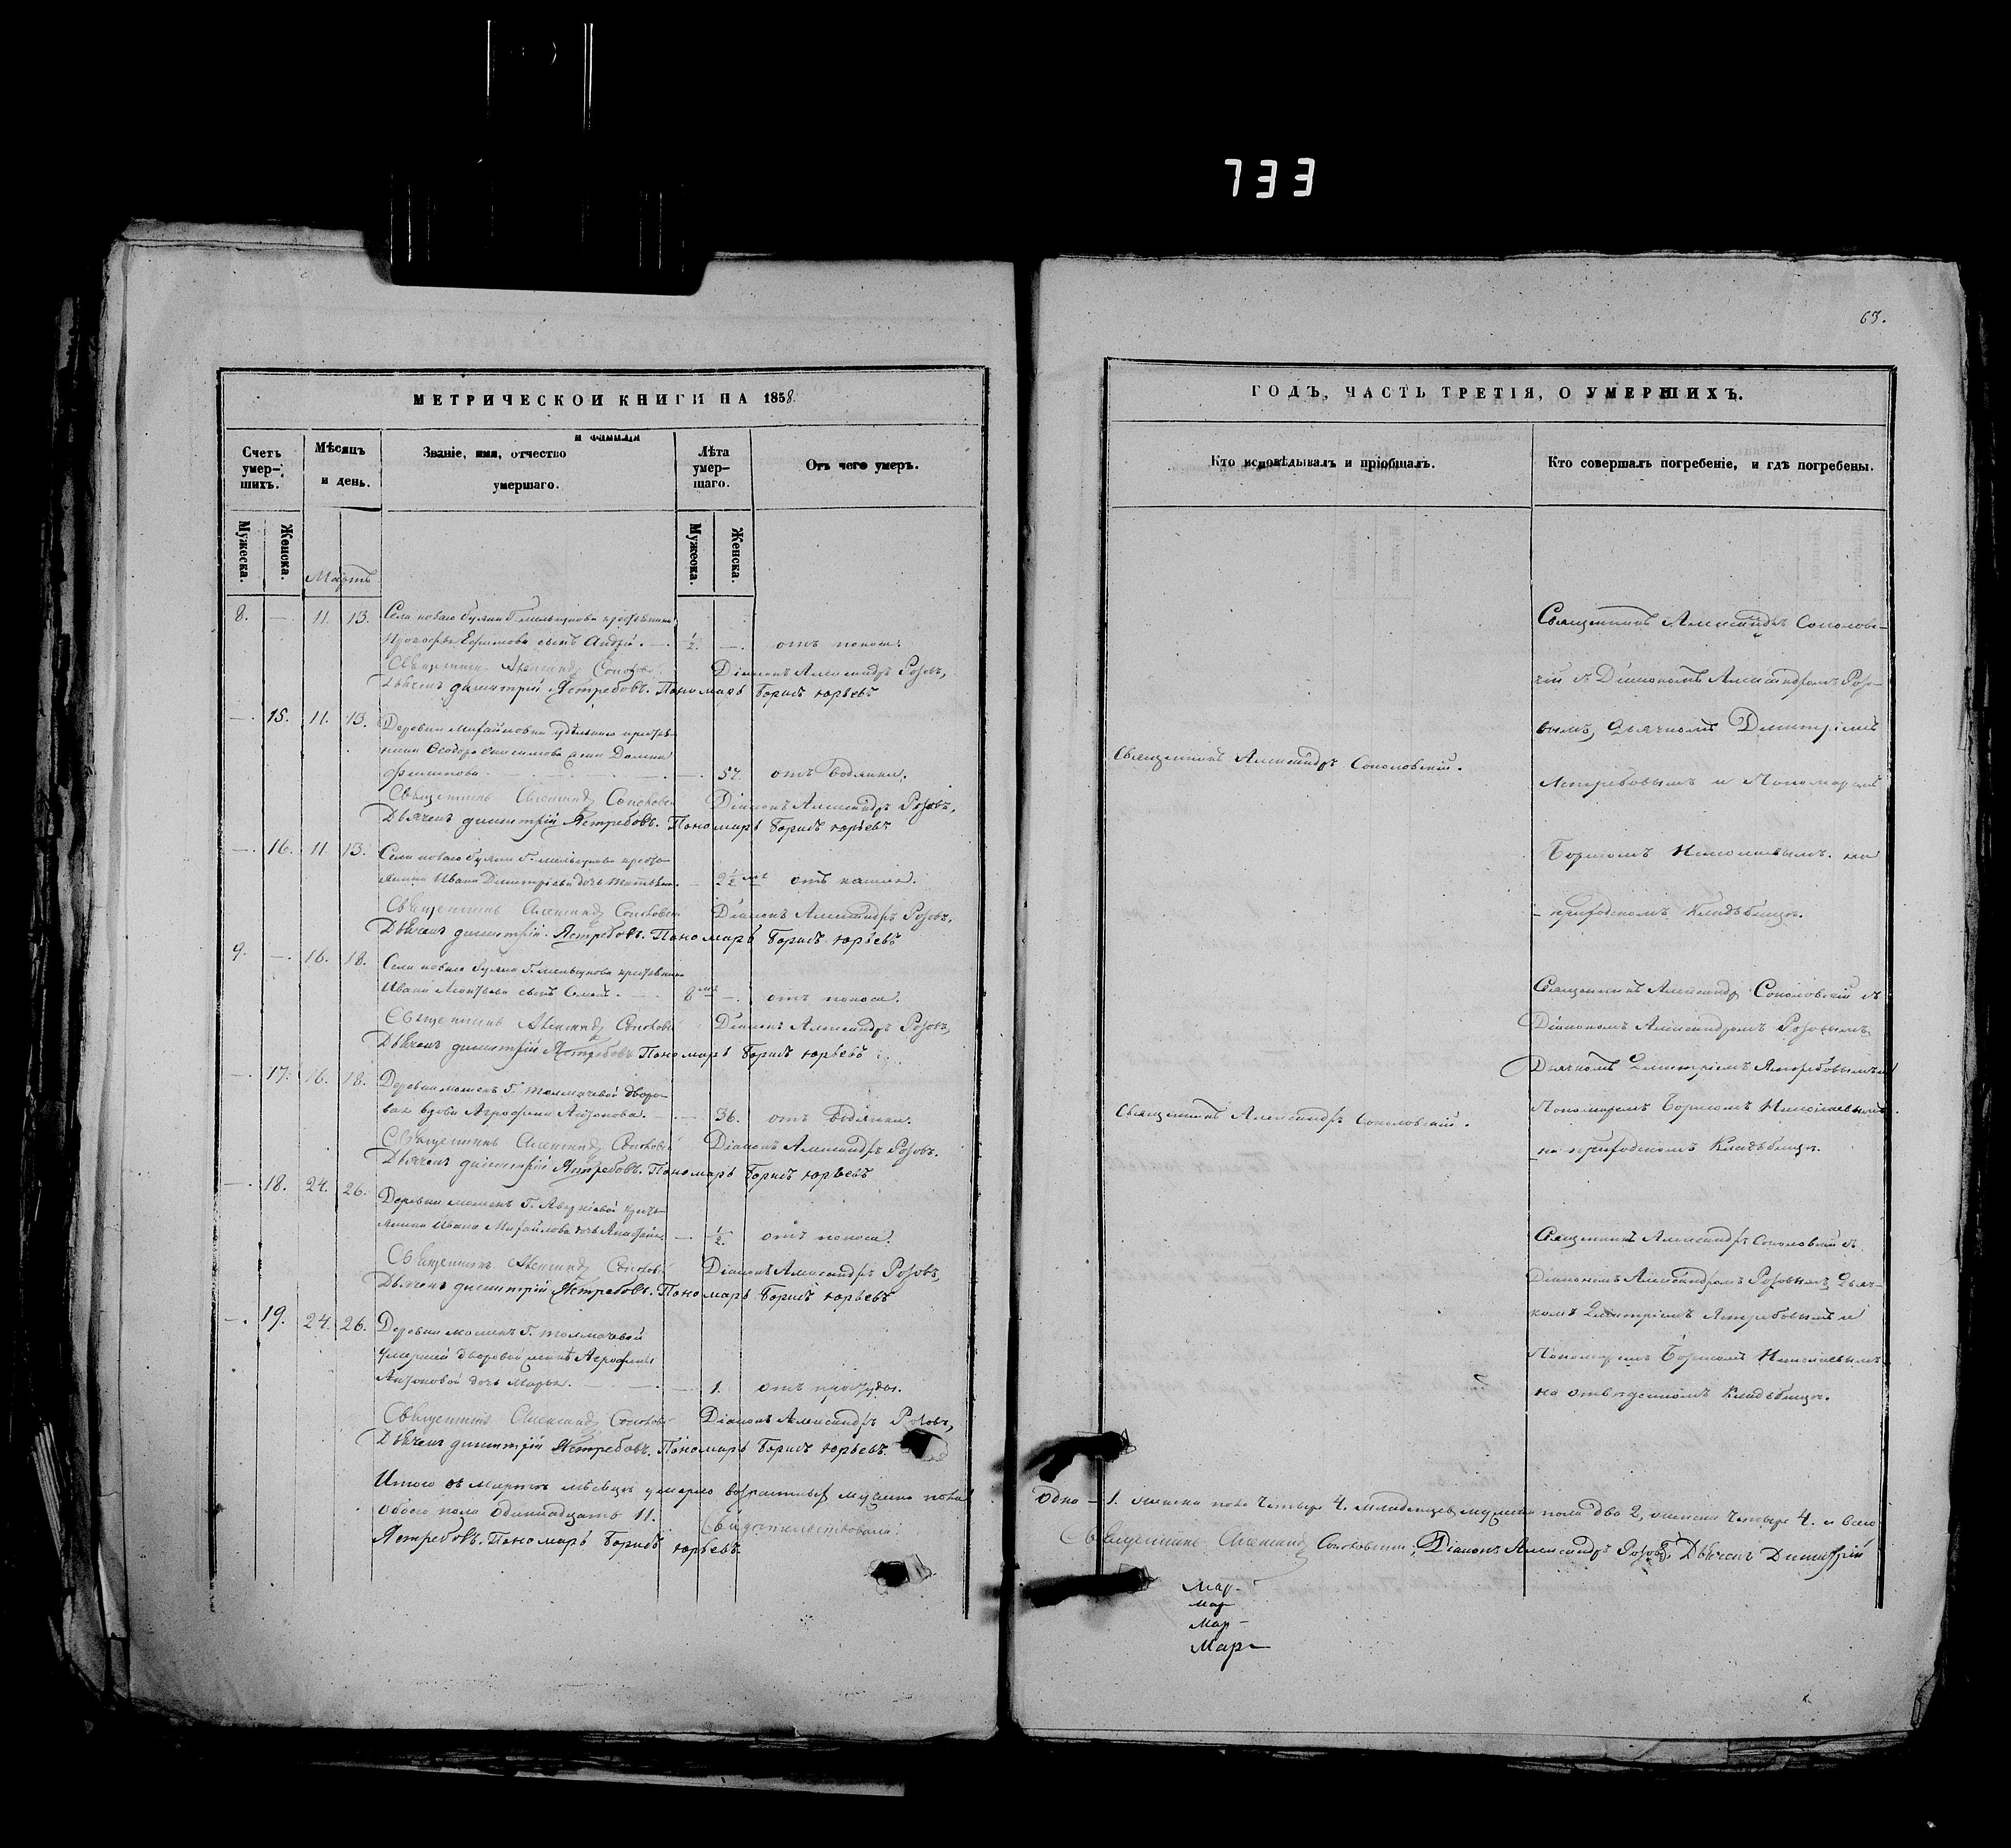 733
63.
МЕТРИЧЕСКОЙ КНИГИ НА 1858.
Счетъ умер-шихъ.
Мѣсяцъ и день.
Званіе, имя, отчество и фамилія умершаго.
Лѣта умер-шаго.
Отъ чего умеръ.
Мужеска.
Женска.
Мужеска.
Женска.
Мартъ
8. — 11. 13. Села новаго Буяна Г. Мельгунова крестьянина
Ефимова сынъ Андрей. — 1/2. — отъ поноса.
Священникъ Александр Соколовс Діаконъ Александръ Розовъ,
Дьячекъ Димитрій Ястребовъ. Пономарь Борисъ Юрьевъ
— 15. 11. 13. Деревни Михайловки удѣльнаго крестья-
нина Ѳеодора жена Домна
— 57. отъ водянки.
Священникъ Александр Соколовс Діаконъ Александръ Розовъ,
Дьячекъ Димитрій Ястребовъ. Пономарь Борисъ Юрьевъ
— 16. 11. 13. Села новаго Буяна Г. Мельгунова кресть-
янина Ивана Димитріева дочь Татьяна. — 2 1/2 лѣт отъ кашля.
Священникъ Александр Соколовс Діаконъ Александръ Розовъ.
Дьячекъ Димитрій Ястребовъ. Пономарь Борисъ Юрьевъ
9. — 16. 18. Села новаго Буяна Г. Мельгунова крестьянина
Ивана Леонтьева сынъ — 8 — отъ поноса.
Священникъ Александр Соколовс Діаконъ Александръ Розовъ,
Дьячекъ Димитрій Ястребовъ Пономарь Борисъ Юрьевъ
— 17. 16. 18. Деревни Г. Толмачевой дворо-
вая вдова Агрофена Антонова. — 36. отъ водянки.
Священникъ Александр Соколовс Діаконъ Александръ Розовъ.
Дьячекъ Димитрій Ястребовъ. Пономарь Борисъ Юрьевъ
— 18. 24. 26. Деревни Г. кресть-
янина Ивана Михайлова дочь — 1/2. отъ поноса.
Священникъ Александр Соколовс Діаконъ Александръ Розовъ,
Дьячекъ Димитрій Ястребовъ. Пономарь Борисъ Юрьевъ
— 19. 24. 26. Деревни Г. Толмачевой
умершей дворовой Агрофены
Антоновой дочь Марья. — 1. отъ простуды.
Священникъ Александр Соколовс Діаконъ Александръ Розовъ,
Дьячекъ Димитрій Ястребовъ. Пономарь Борисъ Юрьевъ.
Итого въ Мартѣ мѣсяцѣ умерло возрастныхъ мужска пола
обоего пола одиннадцать 11. Свидетельствовали:
Ястребовъ. Пономарь Борисъ Юрьевъ
ГОДЪ, ЧАСТЬ ТРЕТІЯ, О УМЕРШИХЪ.
Кто исповѣдывалъ и пріобщалъ.
Кто совершалъ погребеніе, и гдѣ погребены.
Священникъ Александръ Соколовс-
кій съ Діакономъ Александромъ Розо-
вымъ, Дьячкомъ Димитріемъ
Священникъ Александръ Соколовскій.
Ястребовымъ и Пономаремъ
Борисомъ Николаевымъ. на
приходскомъ Кладбищѣ.
Священникъ Александр Соколовскій съ
Діакономъ Александромъ Розовымъ
Дьячкомъ Димитріемъ Ястребовымъ и
Священникъ Александръ Соколовскій.
Пономаремъ Борисомъ Николаевымъ.
на приходскомъ Кладбищѣ.
Священникъ Александръ Соколовскій съ
Діакономъ Александромъ Розовымъ, Дьяч-
комъ Димитріемъ Ястребовымъ и
Пономаремъ Борисомъ Николаевымъ
на отведенномъ Кладбищѣ.
одно — 1. женска пола четыре 4. младенцев мужска пола два 2, женска четыре 4. и всего
Священникъ Александр Соколовскій, Діаконъ Александръ Розовъ, Дьячекъ Димитрій
Мар-
Мар
Мар-
Мар